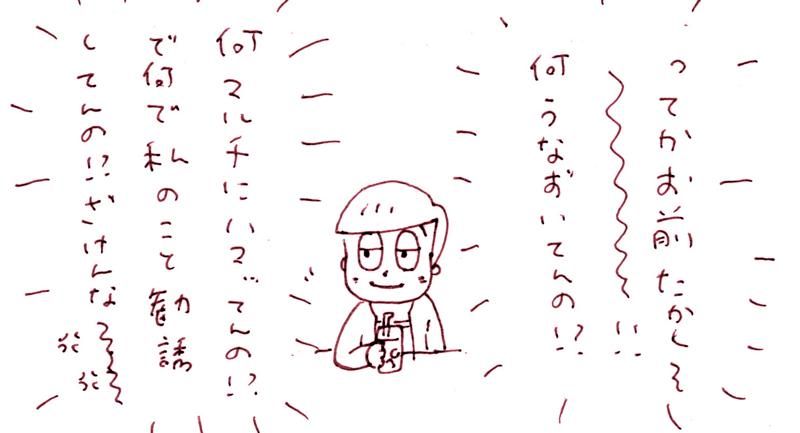 ってかお前たかし〜
〜〜〜!!
何うなずいてんの!?
何マルチにハマってんの!?
で何で私のこと勧誘
してんの!?ざけんな〜〜